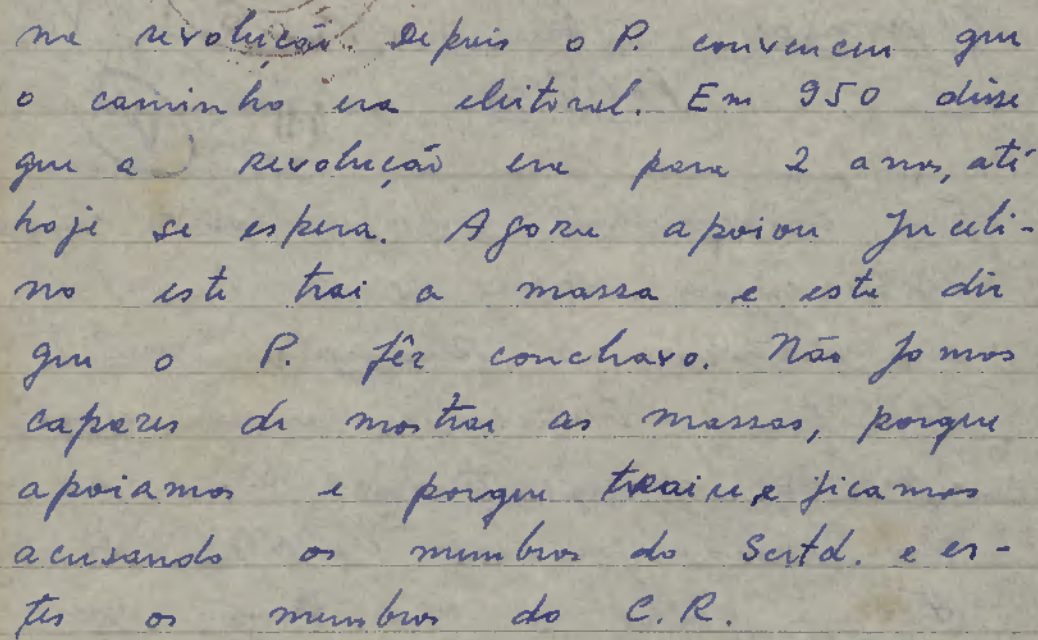 na revolução. Depois o P. convenceu que
o caminho era eleitoral. Em 950 disse
que a revolução era para 2 anos, até
hoje se espera. Agora apoiou Juceli-
no este trai a massa e este diz
que o P. fêz conchavo. Não fomos
capazes de mostrar as massas, porque
apoiamos e porque traiu, e ficamos
acusando os membros do Sectd. e es-
tes os membros do C.R.